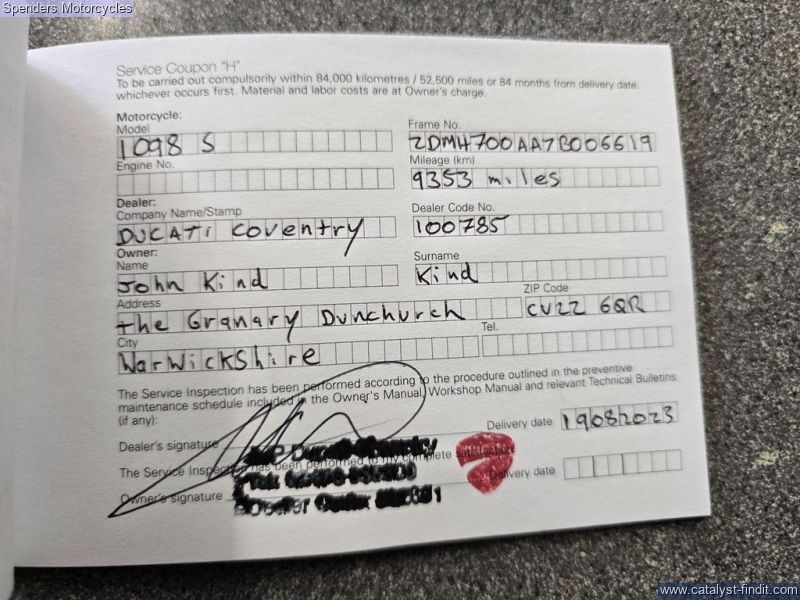 Spenders Motorcycles
Service Coupon "H"
To be carried out compulsorily within 84,000 kilometres / 52,500 miles or 84 months from delivery date,
whichever occurs first. Material and labor costs are at Owner's charge.
Motorcycle:
Model
1098 S
Frame No.
ZDMH700AA7B006619
Engine No.
Mileage (km)
9353 miles
Dealer:
Company Name/Stamp
DUCATI COVENTRY
Dealer Code No.
100785
Owner:
Name
John Kind
Surname
Kind
Address
the Granary Dunchurch
ZIP Code
CV22 6QR
City
Warwickshire
Tel.
The Service Inspection has been performed according to the procedure outlined in the preventive
maintenance schedule included in the Owner's Manual, Workshop Manual and relevant Technical Bulletins
(if any):
Dealer's signature
Delivery date
19082023
The Service Inspection has been performed to my complete satisfaction
Delivery date
Owner's signature
www.catalyst-findit.com